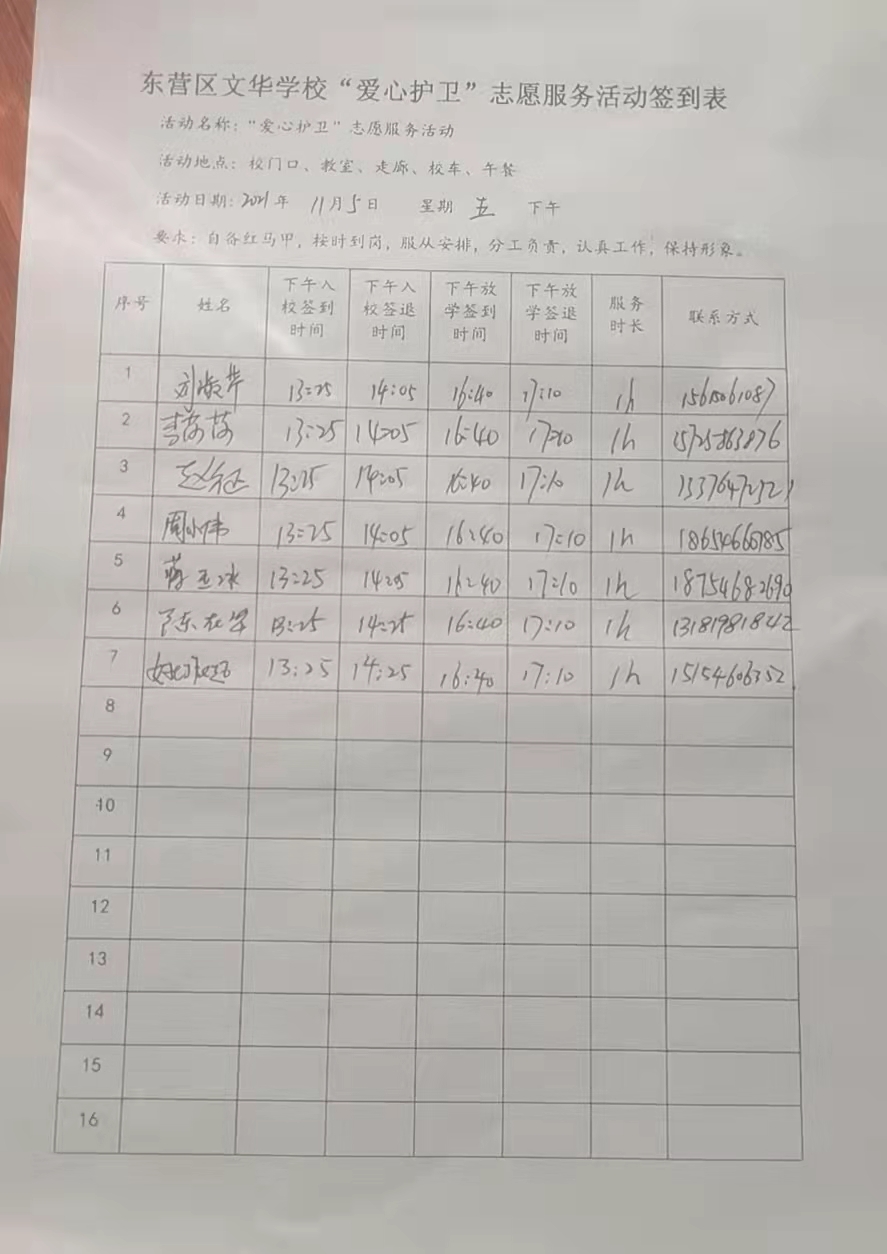 东营区文华学校“爱心护卫”志愿服务活动签到表
活动名称:“爱心护卫”志愿服务活动
活动地点: 校门口、教室、走廊、校车、午餐
活动日期: 2021年 11月5日 星期 五 下午
要求: 自备红马甲, 按时到岗, 服从安排, 分工负责, 认真工作, 保持形象。
序号 姓名 下午入校签到时间 下午入校签退时间 下午放学签到时间 下午放学签退时间 服务时长 联系方式
1 刘淑芹 13:25 14:05 16:40 17:10 1h
2 李茹茹 13:25 14:05 16:40 17:10 1h 15725863876
3 赵征 13:25 14:05 16:40 17:10 1h
4 周小伟 13:25 14:05 16:40 17:10 1h
5 蒋玉冰 13:25 14:05 16:40 17:10 1h 18754682690
6 13:25 14:25 16:40 17:10 1h 13181981842
7 13:25 14:25 16:40 17:10 1h 15154606352
8
9
10
11
12
13
14
15
16